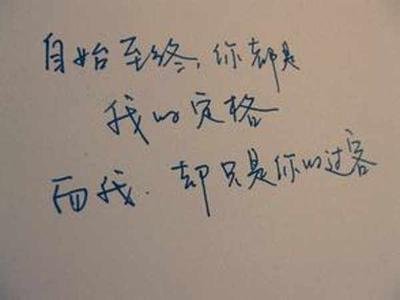 自始至终，你都是
我的定格
而我．却只是你的过客